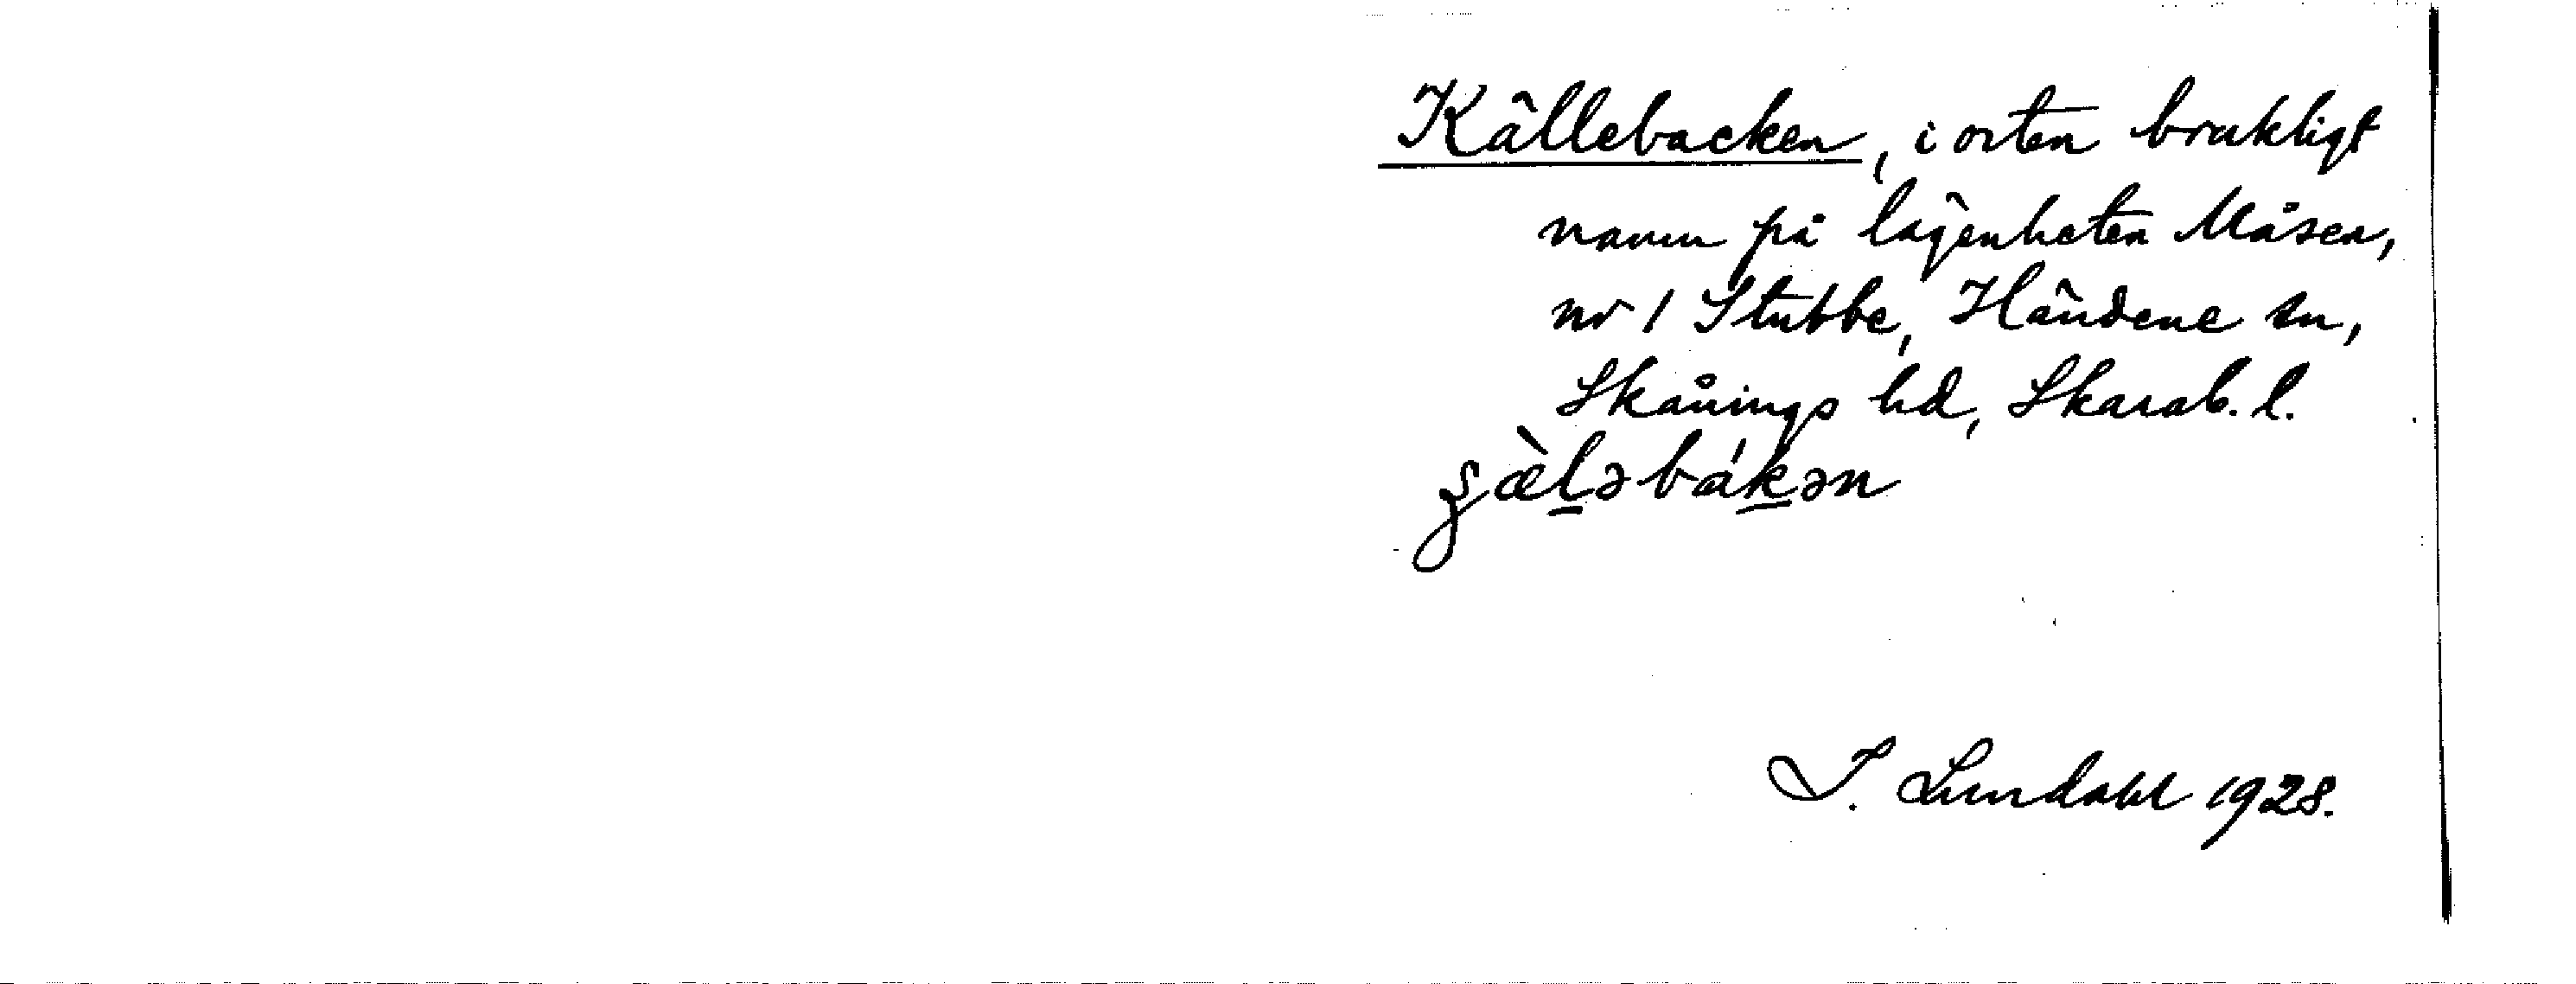 Källebacken, i orten brukligt
namn på lägenheten Måsen,
nr 1 Stubbe, Händene sn,
Skånings hd, Skarab. l.
ʂæ̀l̠əbák̠ən
I. Lundahl 1928.